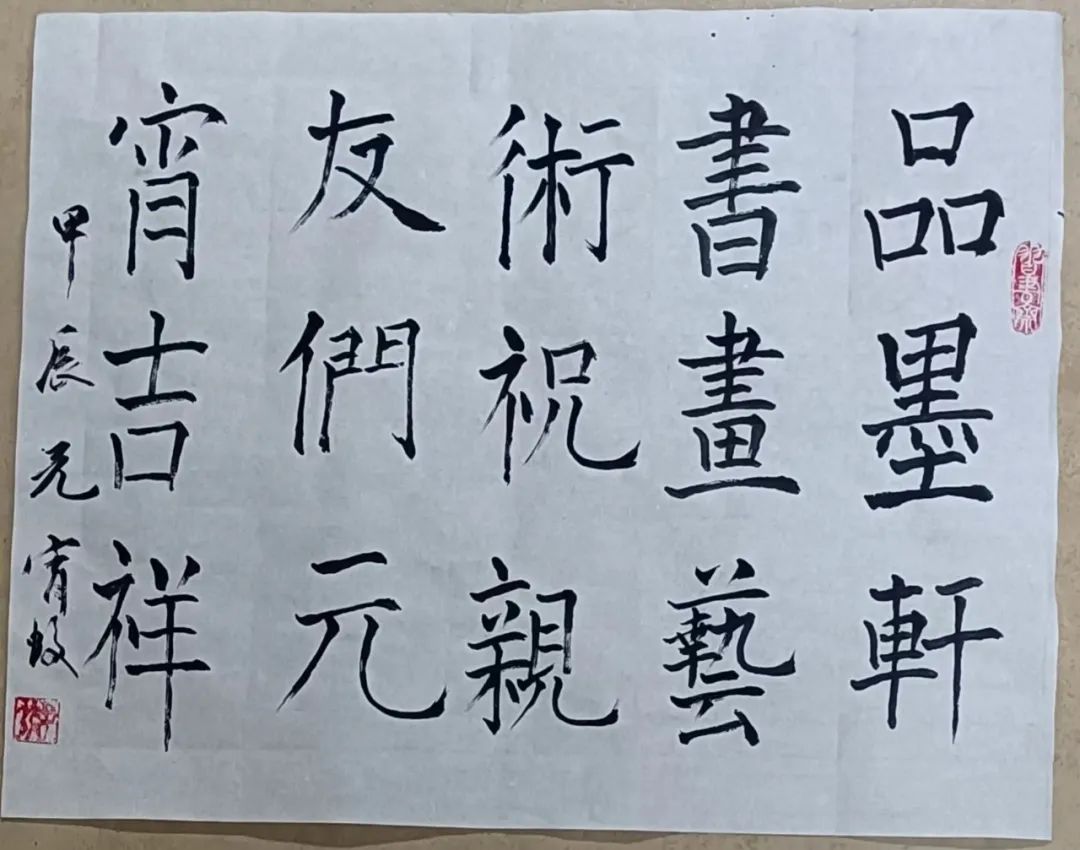 品墨軒
書畫藝
術祝親
友們元
宵吉祥
甲辰元宵